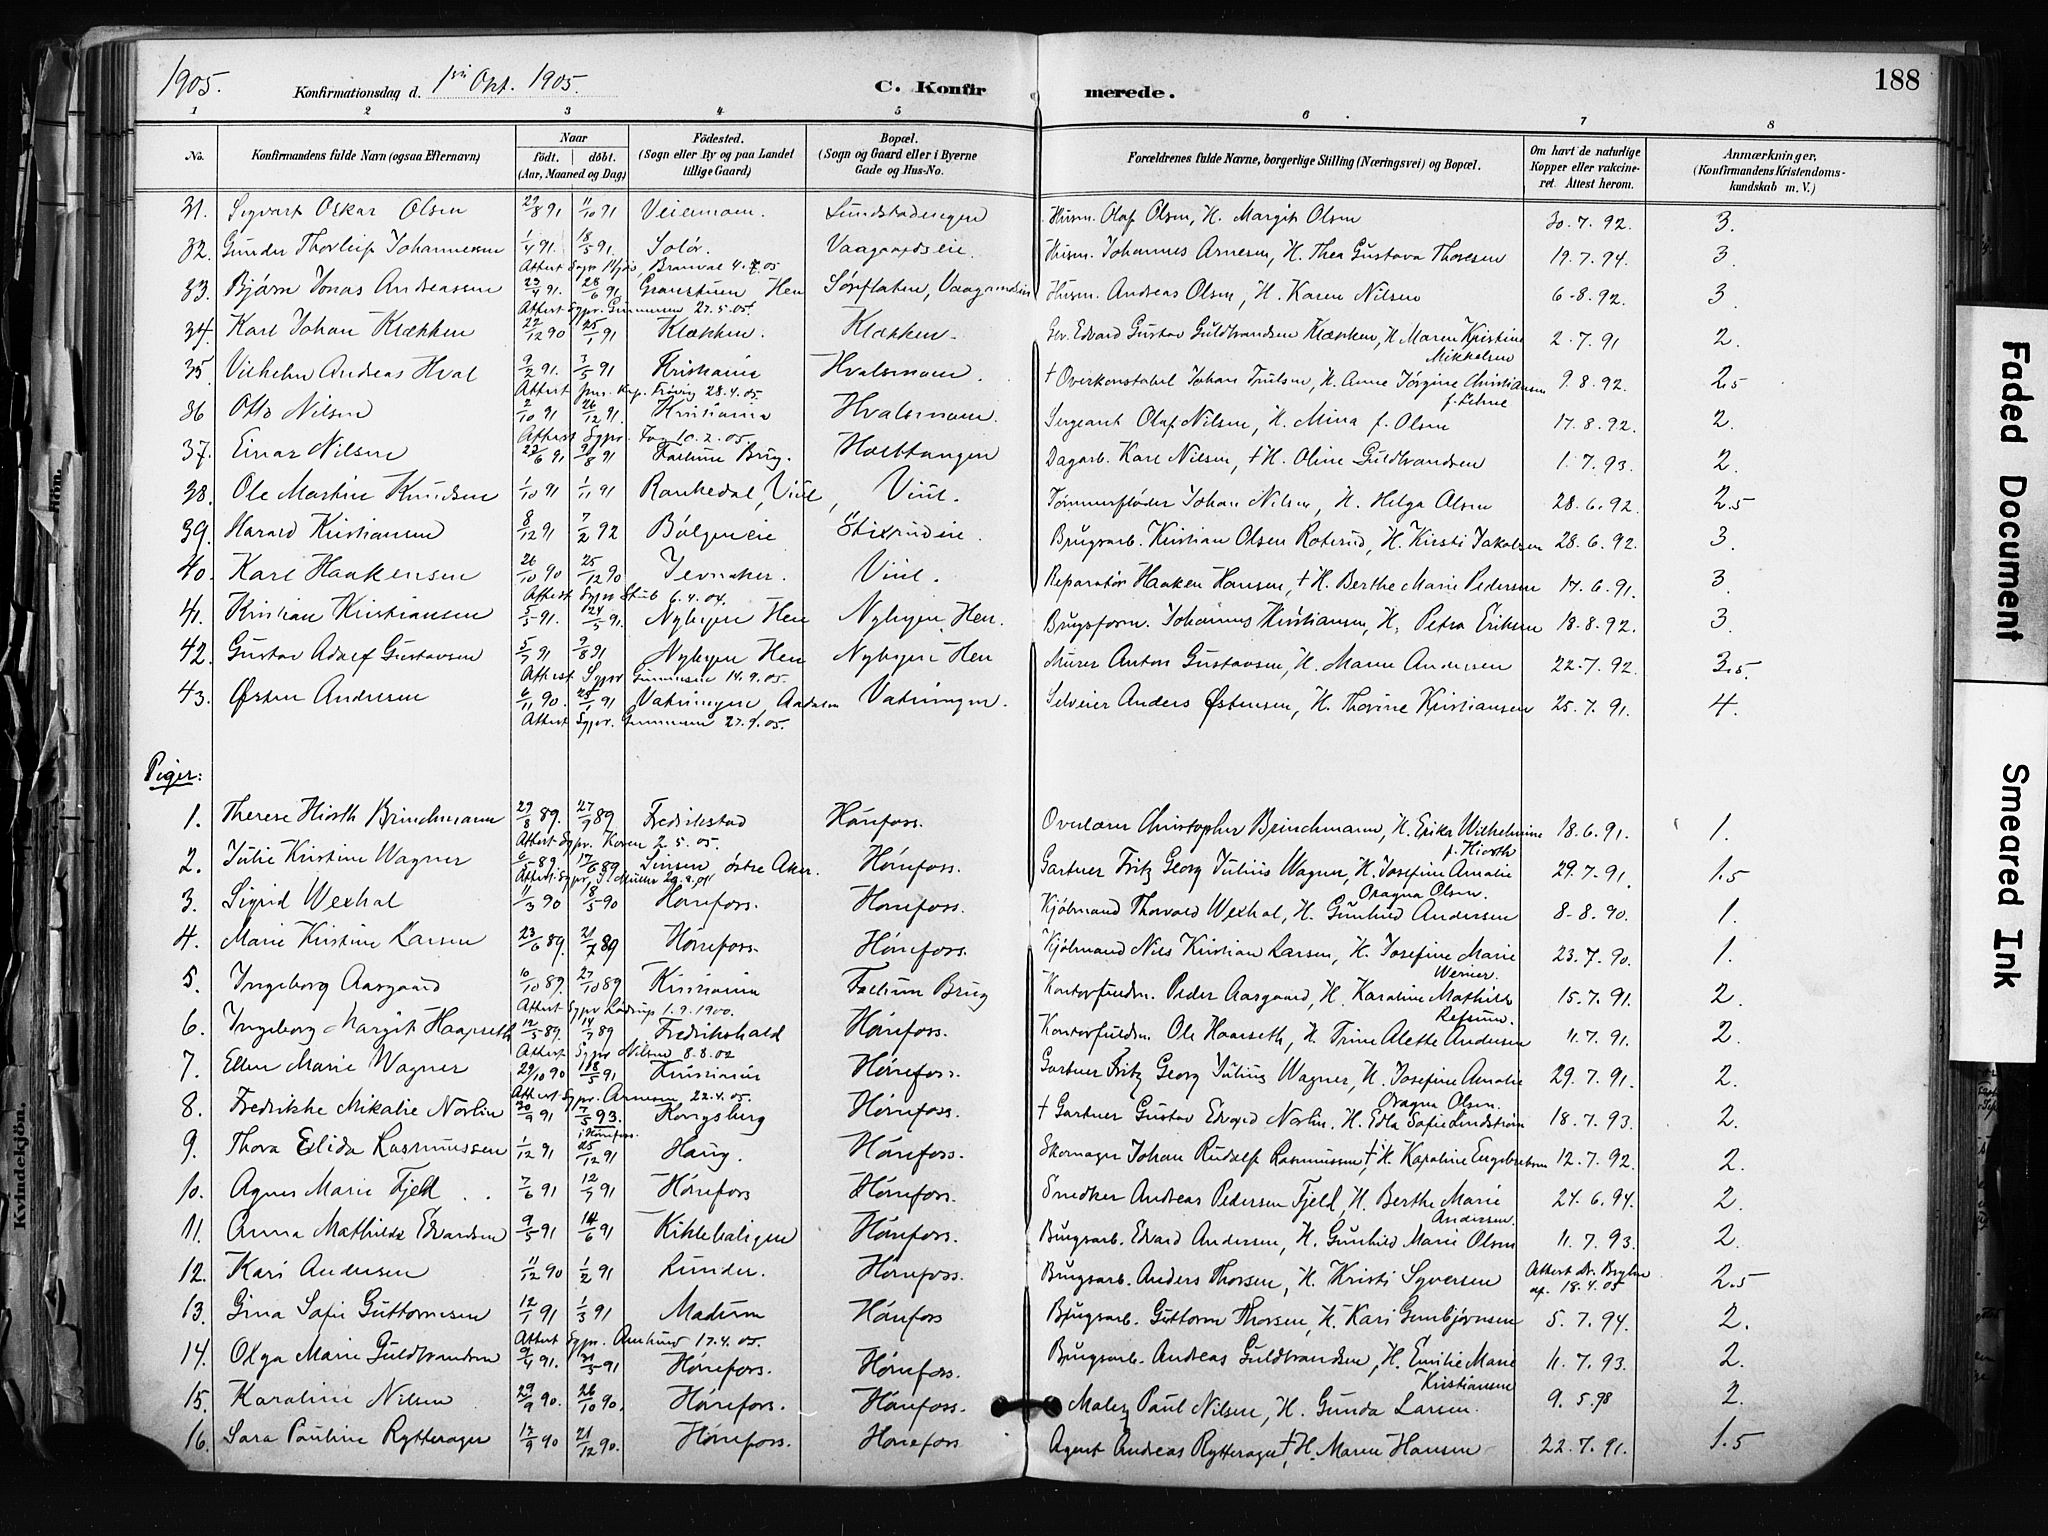 1905. Konfirmationsdag d. 1ste Okt. 1905. C. Konfirmerede. 188
1 2 3 4 5 6 7 8
No. Konfirmandens fulde Navn (ogsaa Efternavn) Naar født. døbt. (Aar, Maaned og Dag) Fødested. (Sogn eller By og paa Landet tillige Gaard) Bopæl. (Sogn og Gaard eller i Byerne Gade og Hus-No. Forældrenes fulde Navne, borgerlige Stilling (Næringsvei) og Bopæl. Om havt de naturlige Kopper eller vakcineret. Attest herom. Anmærkninger, (Konfirmandens Kristendomskundskab m. V.)
31. Sigvart Oskar Olsen 29/8 91 11/10 91 Veienmoen. Lundstadengen Husm. Olaf Olsen, H. Margit Olsen 30.7.92. 3.
32. Gunder Thorleif Johannesen 1/4 91. 18/5 91. Solør. Vaagaardseie Husm. Johannes Arnesen, H. Thea Gustava Thoresen 19.7.94. 3
Attest Sgpr. Branval 4.7.05
33. Bjørn Jonas Andreassen 23/4 91. 28/6 91. Granstuen Hen Sørflaten, Vaagaardseie Husm. Andreas Olsen, H. Karen Nilsen 6-8.92. 3.
Attest Sgpr. Gunnesen 27.5.05.
34. Karl Johan Klækken 22/12 90 25/1 91 Klækken. Klækken. Gbr. Edvard Gustav Guldbrandsen Klækken, H. Maren Kristine Mikkelsen 2.7.91 2.
35. Vilhelm Andreas Hval 9/2 91. 3/5 91 Kristiania Hvalsmoen. † Overkonstabel Johan Trulsen, H. Anne Jørgine Christiansen f. Lehne 9.8.92. 2.5
Attest pers. Kap. Frøvig 28.4.05
36 Otto Nilsen 2/10 91 26/12 91. Kristiania Hvalsmoen. Sergeant Olaf Nilsen, H. Mina f. Olsen 17.8.92. 2.
Attest Sgpr. 10.2.05.
37. Einar Nilsen 23/6 91 9/8 91 Follum Brug. Hoelstangen Dagarb. Karl Nilsen, † H. Oline Guldbrandsen 1.7.93. 2.
38. Ole Martin Knudsen 1/10 91 1/11 91 Raukedal, Viul, Viul. Tømmerfløder Johan Nilsen, H. Helga Olsen 28.6.92. 2.5
39. Harald Kristiansen 8/12 91 7/2 92 Bølgeneie Stixrudeie. Brugsarb. Kristian Olsen Roterud, H. Kirsti Jakobsen 28.6.92. 3.
40. Karl Haakensen 26/10 90 25/12 90 Jevnaker. Viul. Reparatør Haaken Hansen, † H. Berthe Marie Pedersen 17.6.91. 3
Attest Sgpr. Stub 6.4.04.
41. Kristian Kristiansen 5/5 91. 24/5 91. Nybyen Hen Nybyen Hen. Brugsform. Johannes Kristiansen, H. Petra Eriksen 18.8.92. 3.
42. Gustav Adolf Gustavsen 5/7 91 9/8 91 Nybyen Hen Nybyen Hen Murer Anton Gustavsen, H. Marie Andersen 22.7.92. 3.5
Attest Sgpr. Gunnesen 14.9.05.
43. Østen Andersen 6/11 90. 25/1 91 Vatningen, Aadalen Vatningen. Selveier Anders Østensen, H. Thorine Kristiansen 25.7.91. 4.
Attest Sgpr. Gunnesen 27.9.05.
Piger:
1. Therese Hiorth Brinchmann 29/8 89. 27/9 89. Fredrikstad Hønefoss. Overlærer Christopher Brinchmann, H. Erika Wilhelmine f. Hiorth 18.6.91. 1.
Attest Sgpr. Koren 2.5.05.
2. Julie Kristine Wagner 6/5 89. 17/6 89 Sinsen østre Aker. Hønefoss. Gartner Fritz Georg Julius Wagner, H. Josefine Amalie Dragna Olsen. 29.7.91. 1.5
3. Sigrid Wexhal 11/3 90 18/5 90 Hønefoss. Hønefoss. Kjøbmand Thorvald Wexhal, H. Gunhild Andersen 8-8.90. 1.
4. Marie Kristine Larsen 23/6 89. 21/7 89 Hønefoss. Hønefoss. Kjøbmand Nils Kristian Larsen, H. Josefine Marie Werner. 23.7.90. 1.
5. Ingeborg Aasgaard 10/10 89. 27/10 89 Kristiania Follum Brug Kontorfuldm. Peder Aasgaard, H. Karoline Mathilde Refsum. 15.7.91. 2.
Attest Sgpr. Lodrup 1.9.1900.
6. Ingeborg Margit Haagseth 12/5 89. 14/7 89 Fredrikshald Hønefoss. Kontorfuldm. Ole Haagseth, H. Trine Alette Andersen 11.7.91. 2.
Attest Sgpr. Nilsen 8.8.02
7. Ellen Marie Wagner 29/10 90 18/5 91 Kristiania Hønefoss. Gartner Fritz Georg Julius Wagner, H. Josefine Amalie Dragna Olsen. 29.7.91. 2.
Attest Sgpr. Arnesen 22.4.05.
8. Fredrikke Mikalie Norlin 30/9 91 7/5 93. i Hønefoss. Kongsberg Hønefoss. † Gartner Gustav Edvard Norlin. H. Edla Sofie Lindstrøm 18.7.93. 2.
9. Thora Elida Rasmussen 1/12 91 25/12 91 Haug. Hønefoss. Skomager Johan Rudolf Rasmussen, † H. Karoline Engebretsen 12.7.92. 2.
10. Agnes Marie Fjeld 7/6 91 12/7 91 Hønefoss Hønefoss. Snedker Andreas Pedersen Fjeld, H. Berthe Marie Andersen. 24.6.94. 2.
11. Anna Mathilde Edvardsen 9/5 91 14/6 91 Kihlebakken Hønefoss. Brugsarb. Edvard Andersen, H. Gunhild Marie Olsen 11.7.93. 2.
12. Kari Andersen 11/12 90 1/2 91 Lunder. Hønefoss. Brugsarb. Anders Thorsen, H. Kristi Syversen Attest Dr. af 18.4.05 2.5
13. Gina Sofie Guttormsen 12/1 91 1/3 91 Modum Hønefoss Brugsarb. Guttorm Thorsen, H. Kari Gunbjørnsen 5.7.94. 2.
Attest Sgpr. Amlund 17.4.05.
14. Olga Marie Guldbrandsen 9/4 91. 31/5 91 Hønefoss. Hønefoss. Brugsarb. Andreas Guldbrandsen, H. Emilie Marie Kristiansen 11.7.93. 2.
15. Karoline Nilsen 29/9 90. 26/10 90. Hønefoss. Hønefoss. Maler Paul Nilsen, H. Gunda Larsen. 9.5.98 2.
16. Sara Pauline Rytterager 17/9 90 21/12 90. Hønefoss. Hønefoss Agent Andreas Rytterager, † H. Maren Hansen 22.7.91. 1.5
Kvindekjön.
Faded Document
Smeared Ink